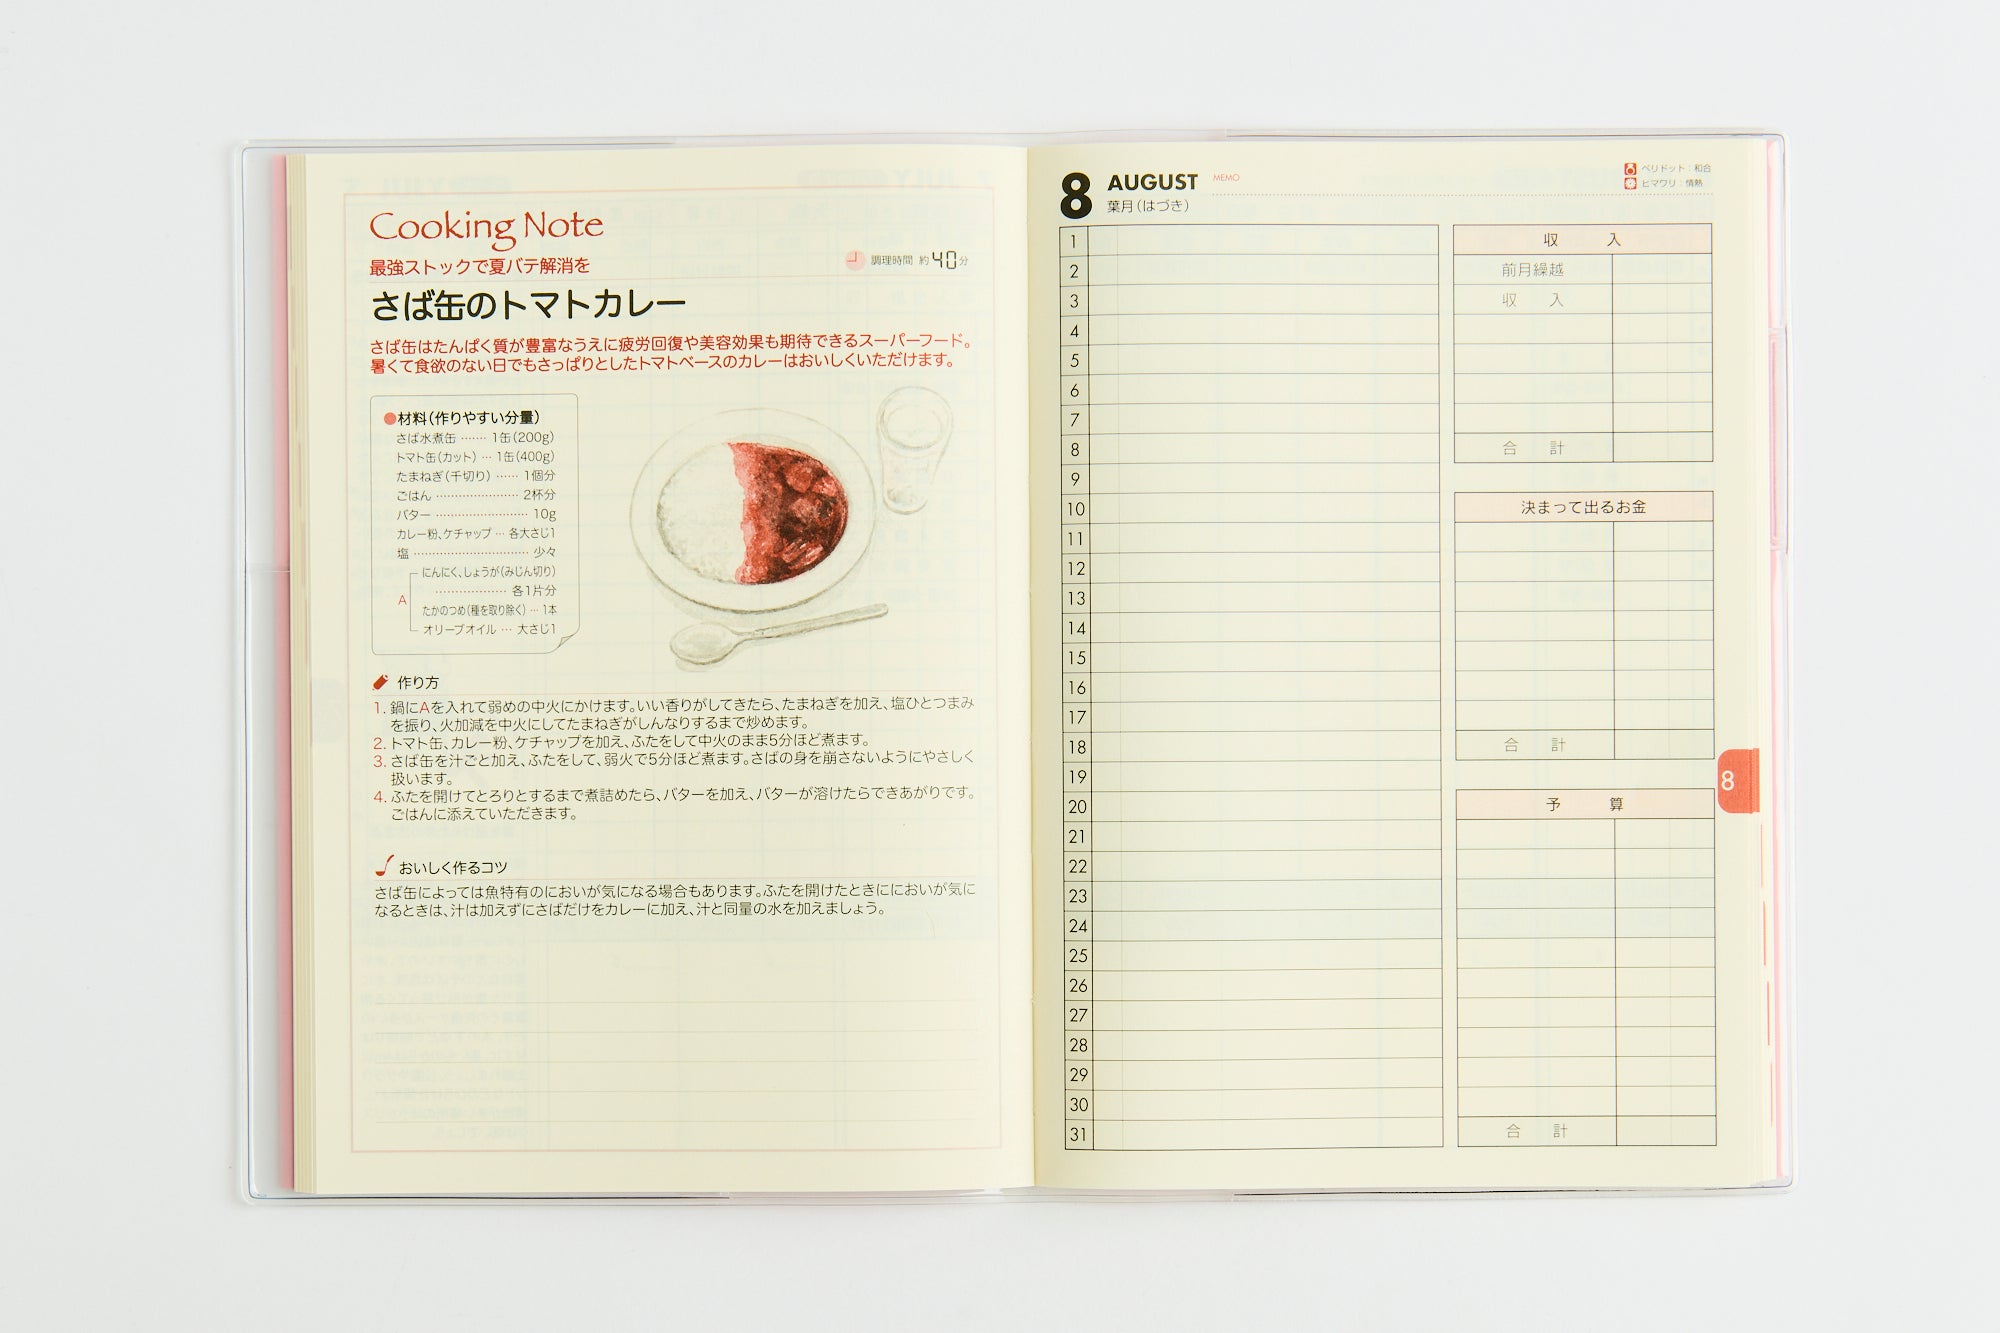 Cooking Note
最強ストックで夏バテ解消を
調理時間 約40分
さば缶のトマトカレー
さば缶はたんぱく質が豊富なうえに疲労回復や美容効果も期待できるスーパーフード。
暑くて食欲のない日でもさっぱりとしたトマトベースのカレーはおいしくいただけます。
●材料（作りやすい分量）
さば水煮缶 ……… 1缶（200g）
トマト缶（カット） … 1缶（400g）
たまねぎ（千切り） …… 1個分
ごはん …………………… 2杯分
バター ……………………… 10g
カレー粉、ケチャップ … 各大さじ1
塩 …………………………… 少々
A
にんにく、しょうが（みじん切り）
………………… 各1片分
たかのつめ（種を取り除く） … 1本
オリーブオイル … 大さじ1
作り方
1. 鍋にAを入れて弱めの中火にかけます。いい香りがしてきたら、たまねぎを加え、塩ひとつまみ
を振り、火加減を中火にしてたまねぎがしんなりするまで炒めます。
2. トマト缶、カレー粉、ケチャップを加え、ふたをして中火のまま5分ほど煮ます。
3. さば缶を汁ごと加え、ふたをして、弱火で5分ほど煮ます。さばの身を崩さないようにやさしく
扱います。
4. ふたを開けてとろりとするまで煮詰めたら、バターを加え、バターが溶けたらできあがりです。
ごはんに添えていただきます。
おいしく作るコツ
さば缶によっては魚特有のにおいが気になる場合もあります。ふたを開けたときににおいが気に
なるときは、汁は加えずにさばだけをカレーに加え、汁と同量の水を加えましょう。
8 AUGUST MEMO
葉月（はづき）
ペリドット：和合
ヒマワリ：情熱
1
2
3
4
5
6
7
8
9
10
11
12
13
14
15
16
17
18
19
20
21
22
23
24
25
26
27
28
29
30
31
収 入
前月繰越
収 入
合 計
決まって出るお金
合 計
予 算
合 計
8